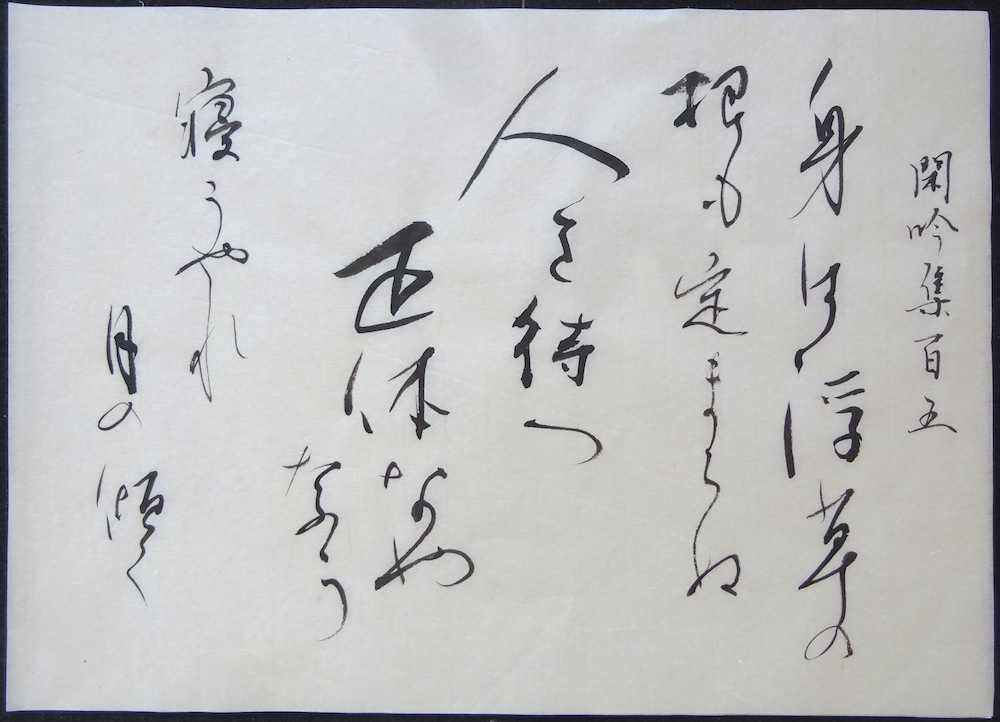 閑吟集百五
身は浮草の
根も定まらぬ
人を待つ
正体なや
なう
寝うやれ
月の傾く